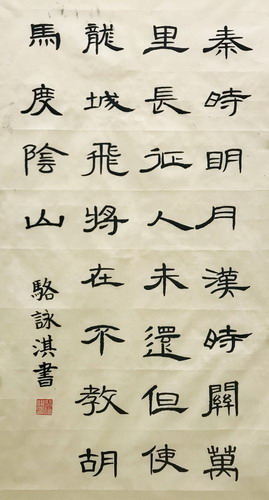 秦時明月漢時關萬
里長征人未還但使
龍城飛將在不教胡
馬度陰山
駱詠淇書